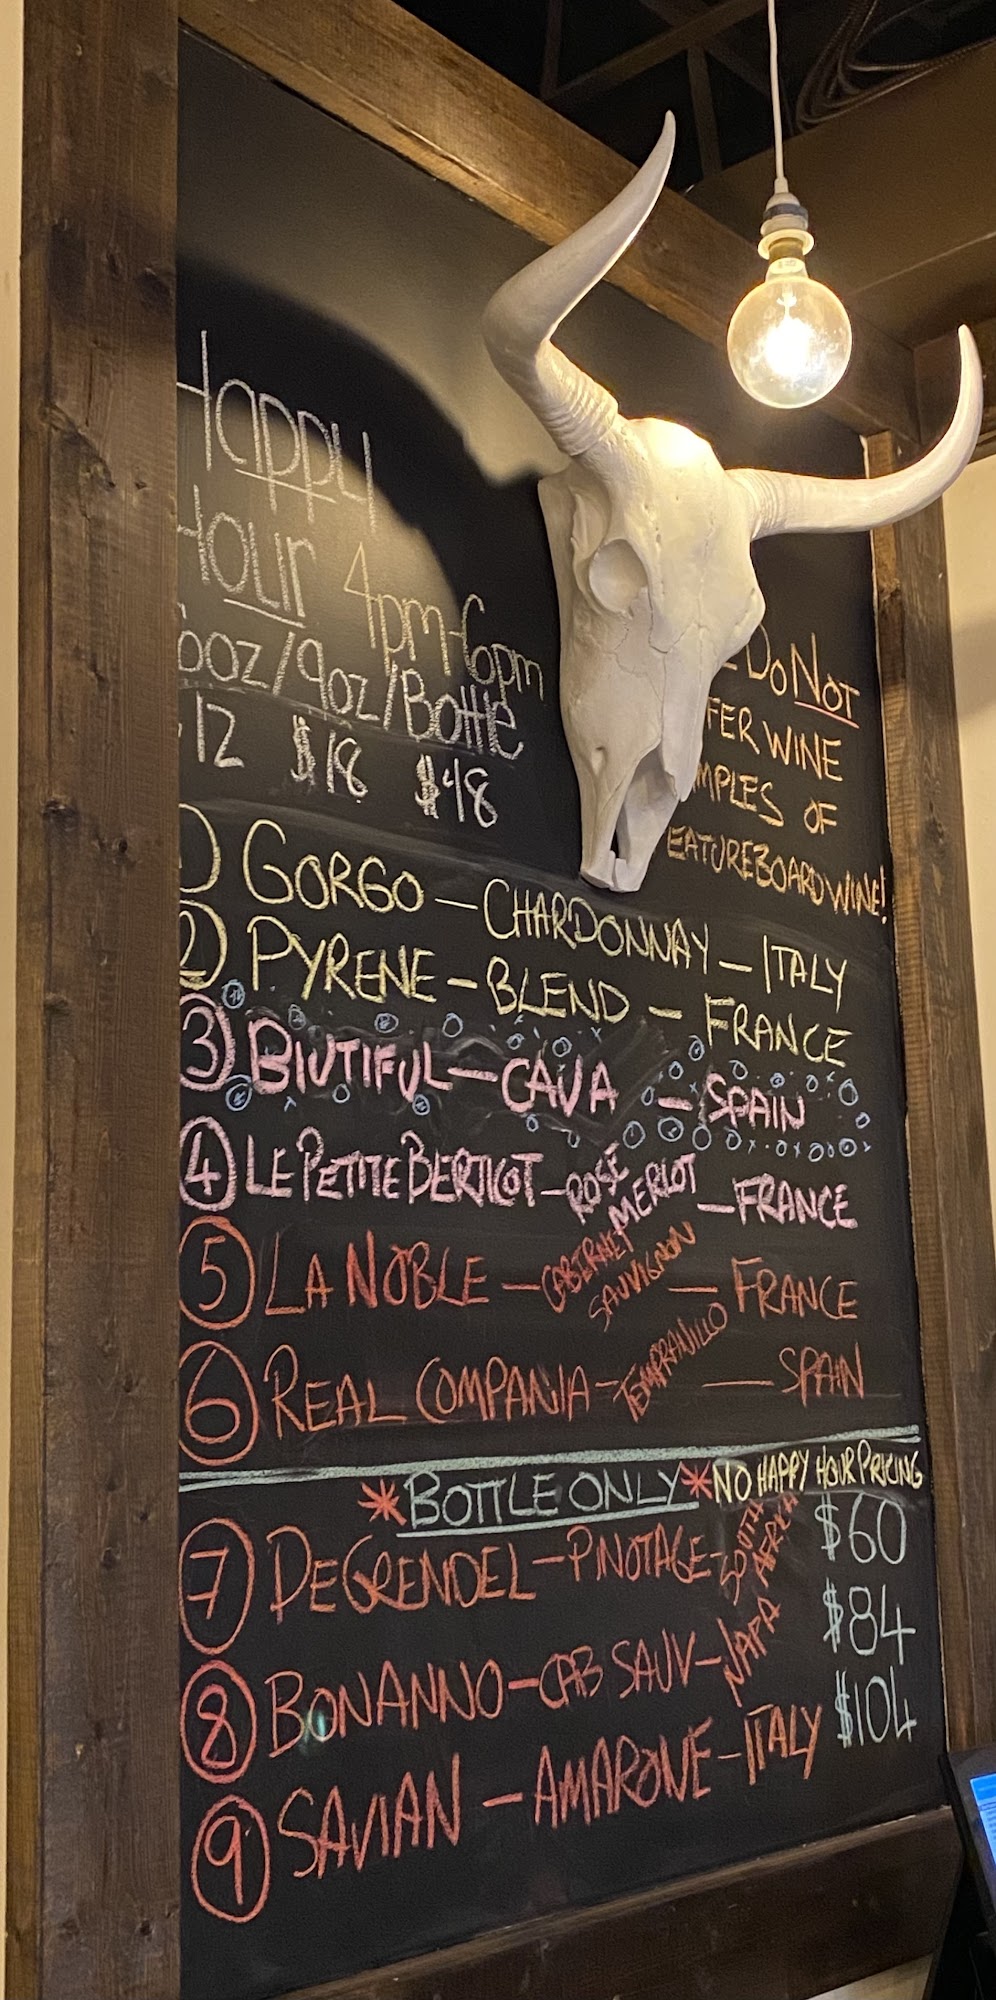 Happy
Hour 4pm-6pm
6oz/9oz/Bottle
$12 $18 $48
DO NOT
FER WINE
MPLES OF
EATUREBOARD WINE!
1) GORGO - CHARDONNAY - ITALY
2) PYRENE - BLEND - FRANCE
3 BIUTIFUL - CAVA - SPAIN
4 LE PETITE BERTICOT - ROSÉ MERLOT - FRANCE
5 LA NOBLE - CABERNET SAUVIGNON - FRANCE
6 REAL COMPANIA - TEMPRANILLO - SPAIN
*BOTTLE ONLY* NO HAPPY HOUR PRICING
7 DEGRENDEL - PINOTAGE - SOUTH AFRICA $60
8 BONANNO - CAB SAUV - NAPA $84
9 SAVIAN - AMARONE - ITALY $104